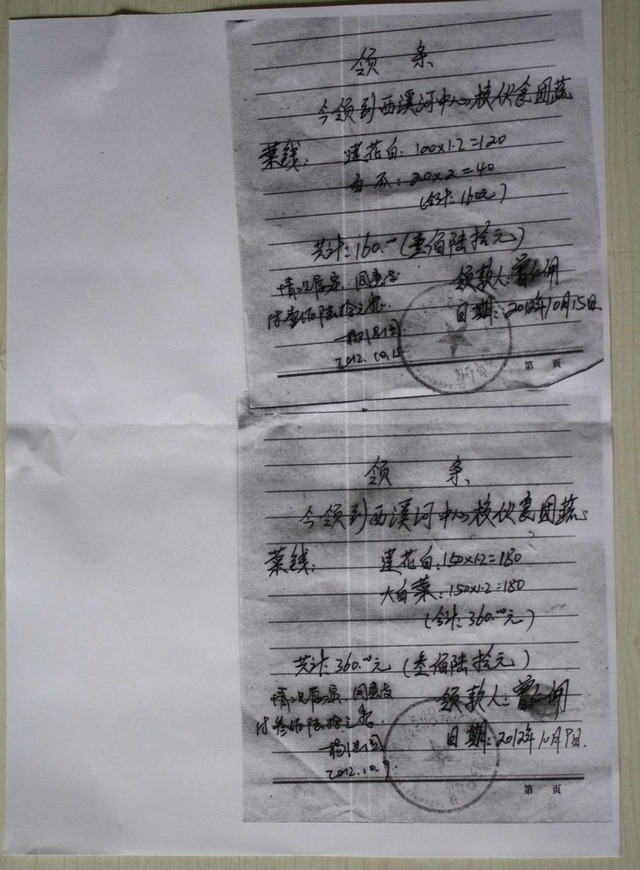 领条
今领到西溪河中心校伙食团蔬
菜钱: 莲花白:100×1.2=120
西瓜:20×2=40
(合计:160元)
共计:160.00(壹佰陆拾元)
情况属实,同意支
付壹佰陆拾元整.
领款人:
日期:2012年10月15日.
2012.10.15
第 页
领条
今领到西溪河中心校伙食团蔬
菜钱: 莲花白:150×1.2=180
大白菜:150×1.2=180
(合计:360.00元)
共计:360.00元(叁佰陆拾元)
情况属实,同意支
付叁佰陆拾元整.
领款人:
日期:2012年10月9日.
2012.10.9
第 页